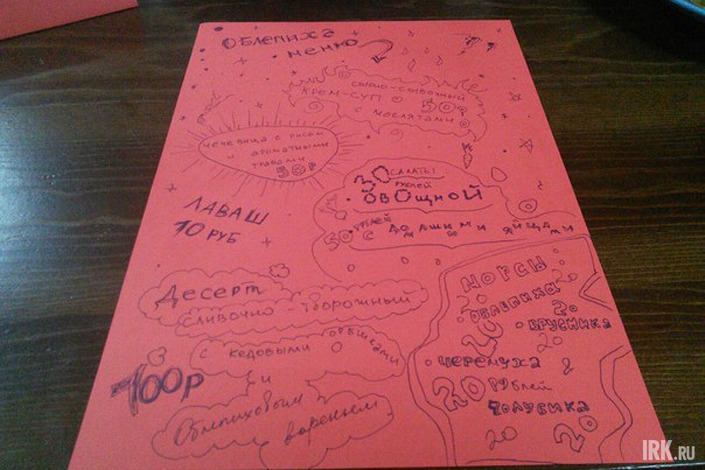 Облепиха
меню
сырно-сливочный
крем-суп
с маслятами
50р
чечевица с рисом
и ароматными
травами
50р
салаты:
30 рублей
овощной
50 рублей с домашними яйцами
ЛАВАШ
10 РУБ
Десерт
сливочно-творожный
с кедовыми орешками
и
облепиховым
вареньем
100р
МОРСЫ
облепиха
20
брусника
20
черемуха &
20 рублей
голубика
20
20
IRK.RU